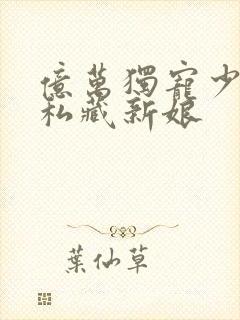 億萬獨寵少
私藏新娘
葉仙草